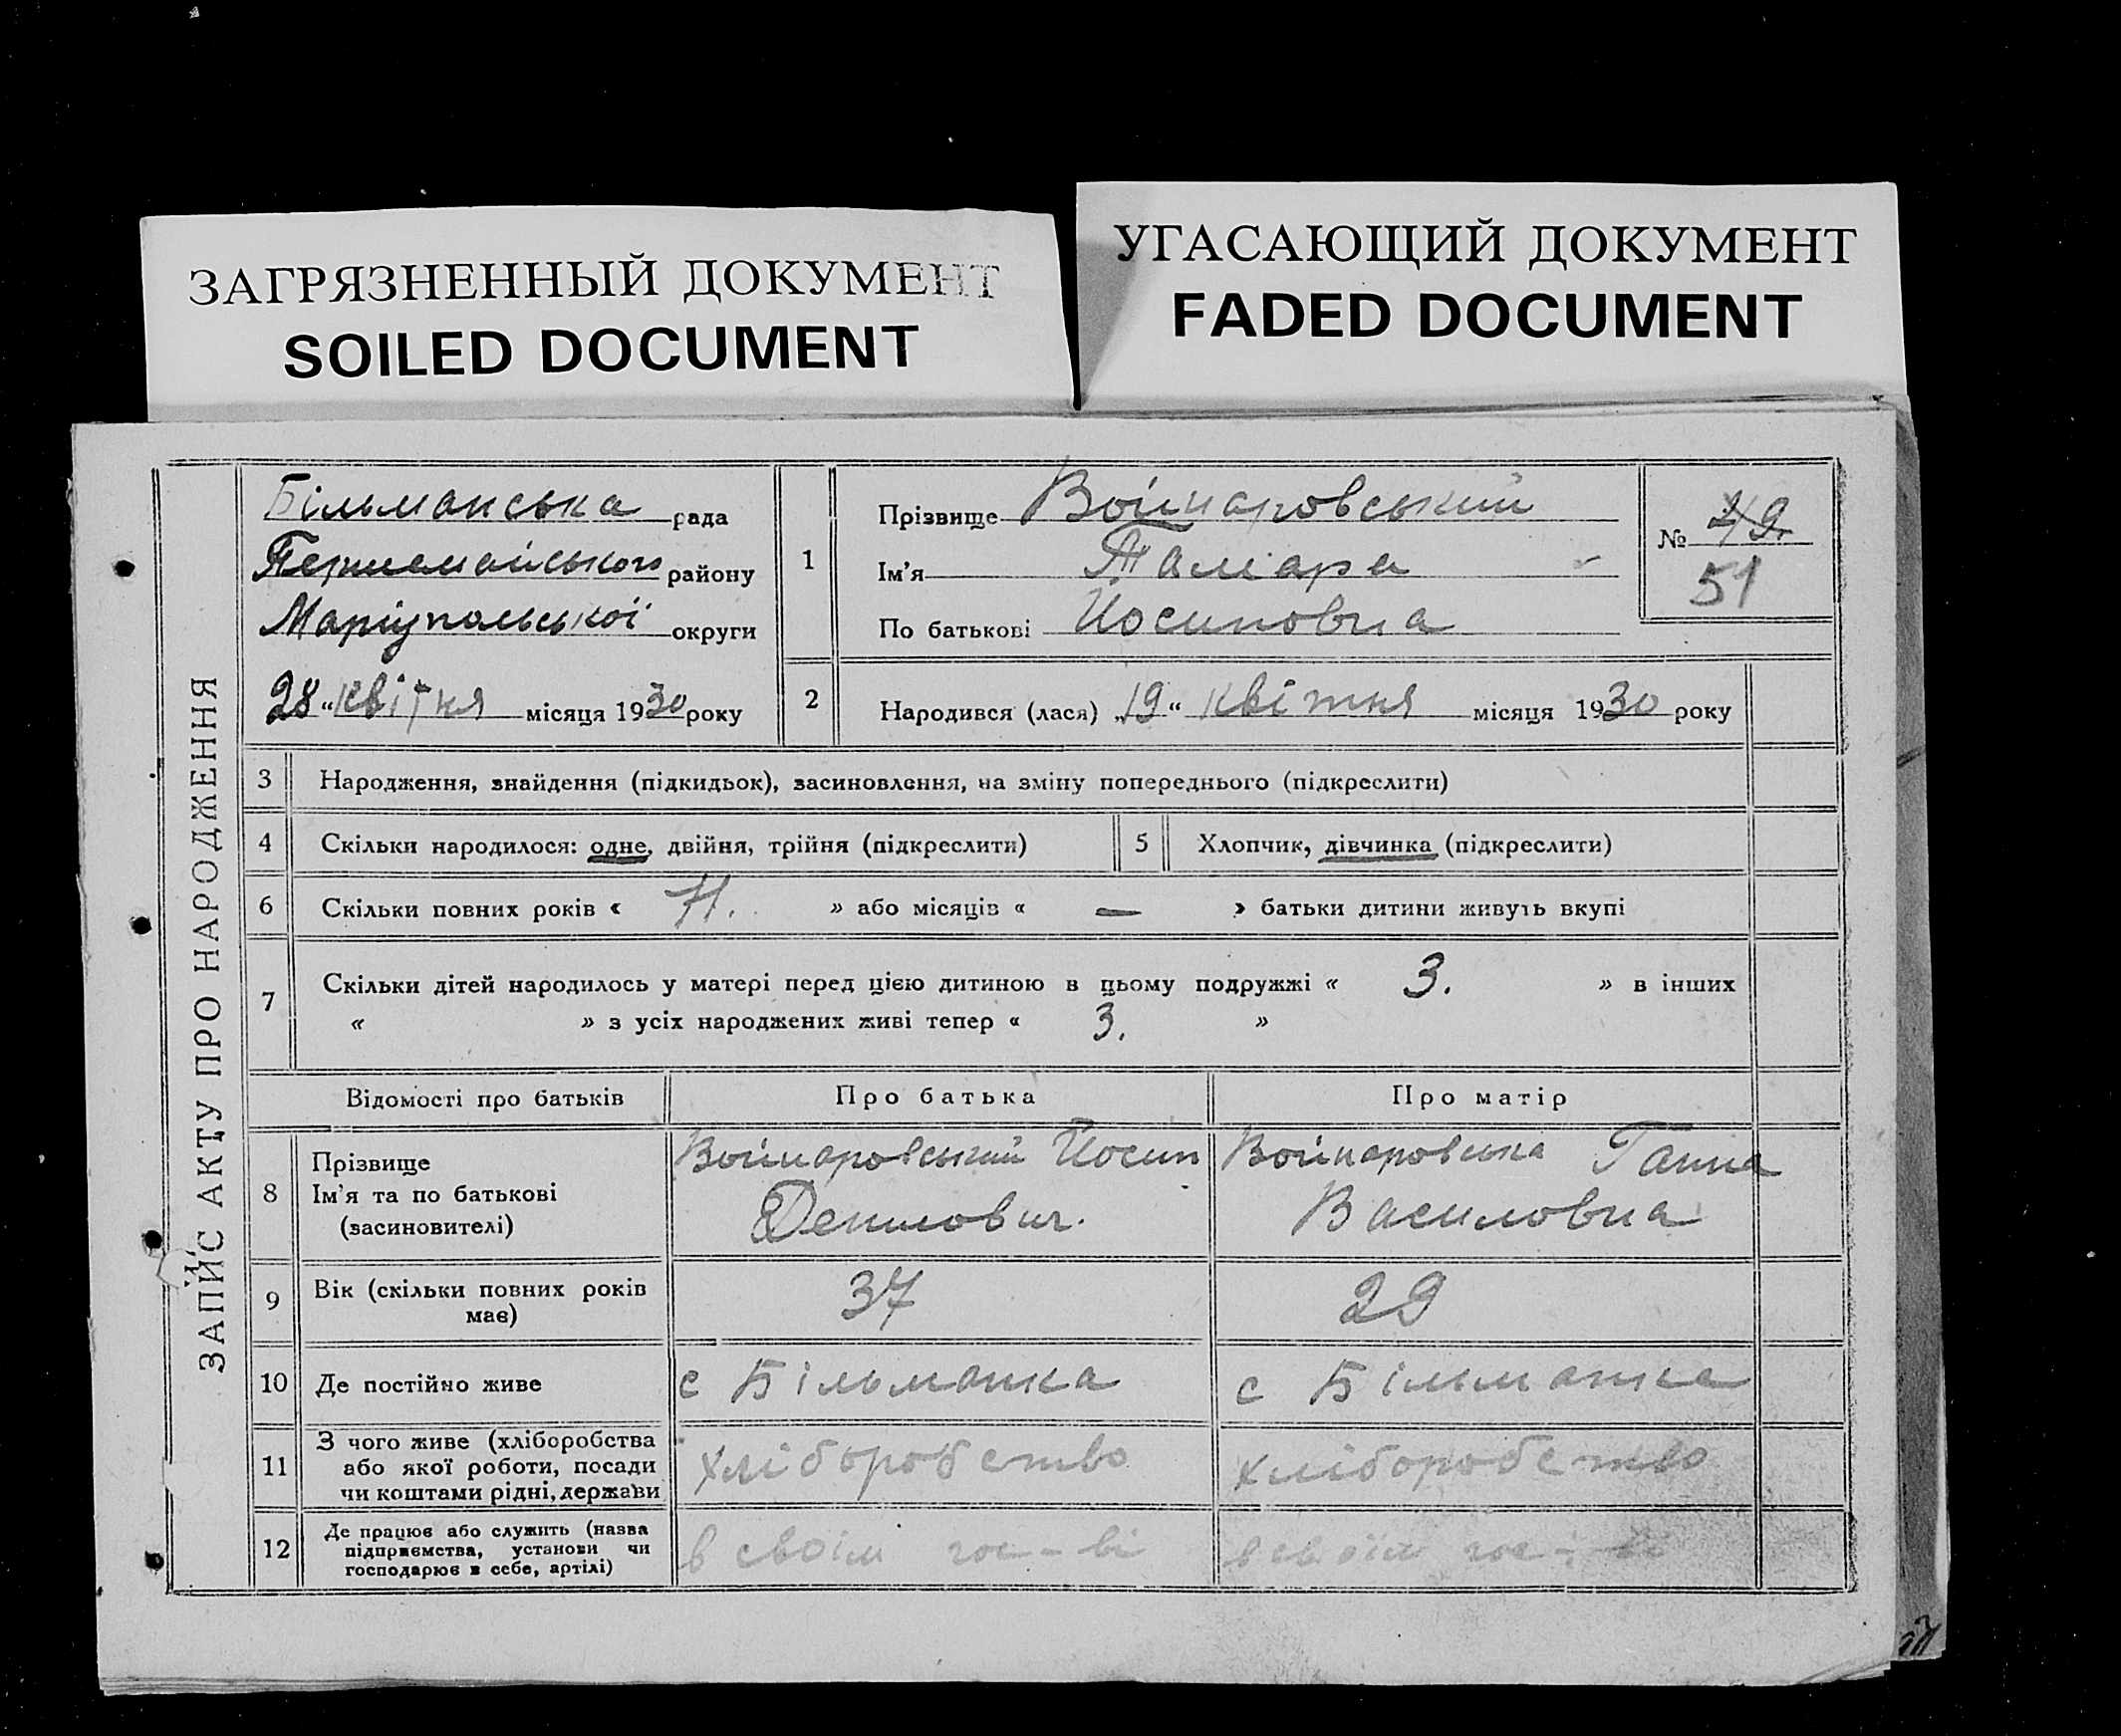 ЗАГРЯЗНЕННЫЙ ДОКУМЕНТ
SOILED DOCUMENT
УГАСАЮЩИЙ ДОКУМЕНТ
FADED DOCUMENT
ЗАПИС АКТУ ПРО НАРОДЖЕННЯ
Більманська рада
Першомайського району
Маріупольської округи
28 " квітня місяця 1930 року
1
Прізвище Войнаровський
Ім'я Тамара
По батькові Йосиповна
№ 49.
51
2 Народився (лася) „19 " квітня місяця 1930 року
3 Народження, знайдення (підкидьок), засиновлення, на зміну попереднього (підкреслити)
4 Скільки народилося: одне, двійня, трійня (підкреслити)
5 Хлопчик, дівчинка (підкреслити)
6 Скільки повних років « » або місяців « — » батьки дитини живуть вкупі
7 Скільки дітей народилось у матері перед цією дитиною в цьому подружжі « 3. » в інших
« » з усіх народжених живі тепер « 3. »
Відомості про батьків Про батька Про матір
8 Прізвище
Ім'я та по батькові
(засиновителі)
Войнаровський Йосип
Денисович.
Войнаровська Ганна
Василовна
9 Вік (скільки повних років
має)
37
29
10 Де постійно живе
с Більманка
с Більманка
11 З чого живе (хліборобства
або якої роботи, посади
чи коштами рідні, держави
хліборобство
хліборобство
12 Де працює або служить (назва
підприємства, установи чи
господарює в себе, артілі)
в своїм гос-ві
в своїм гос-ві